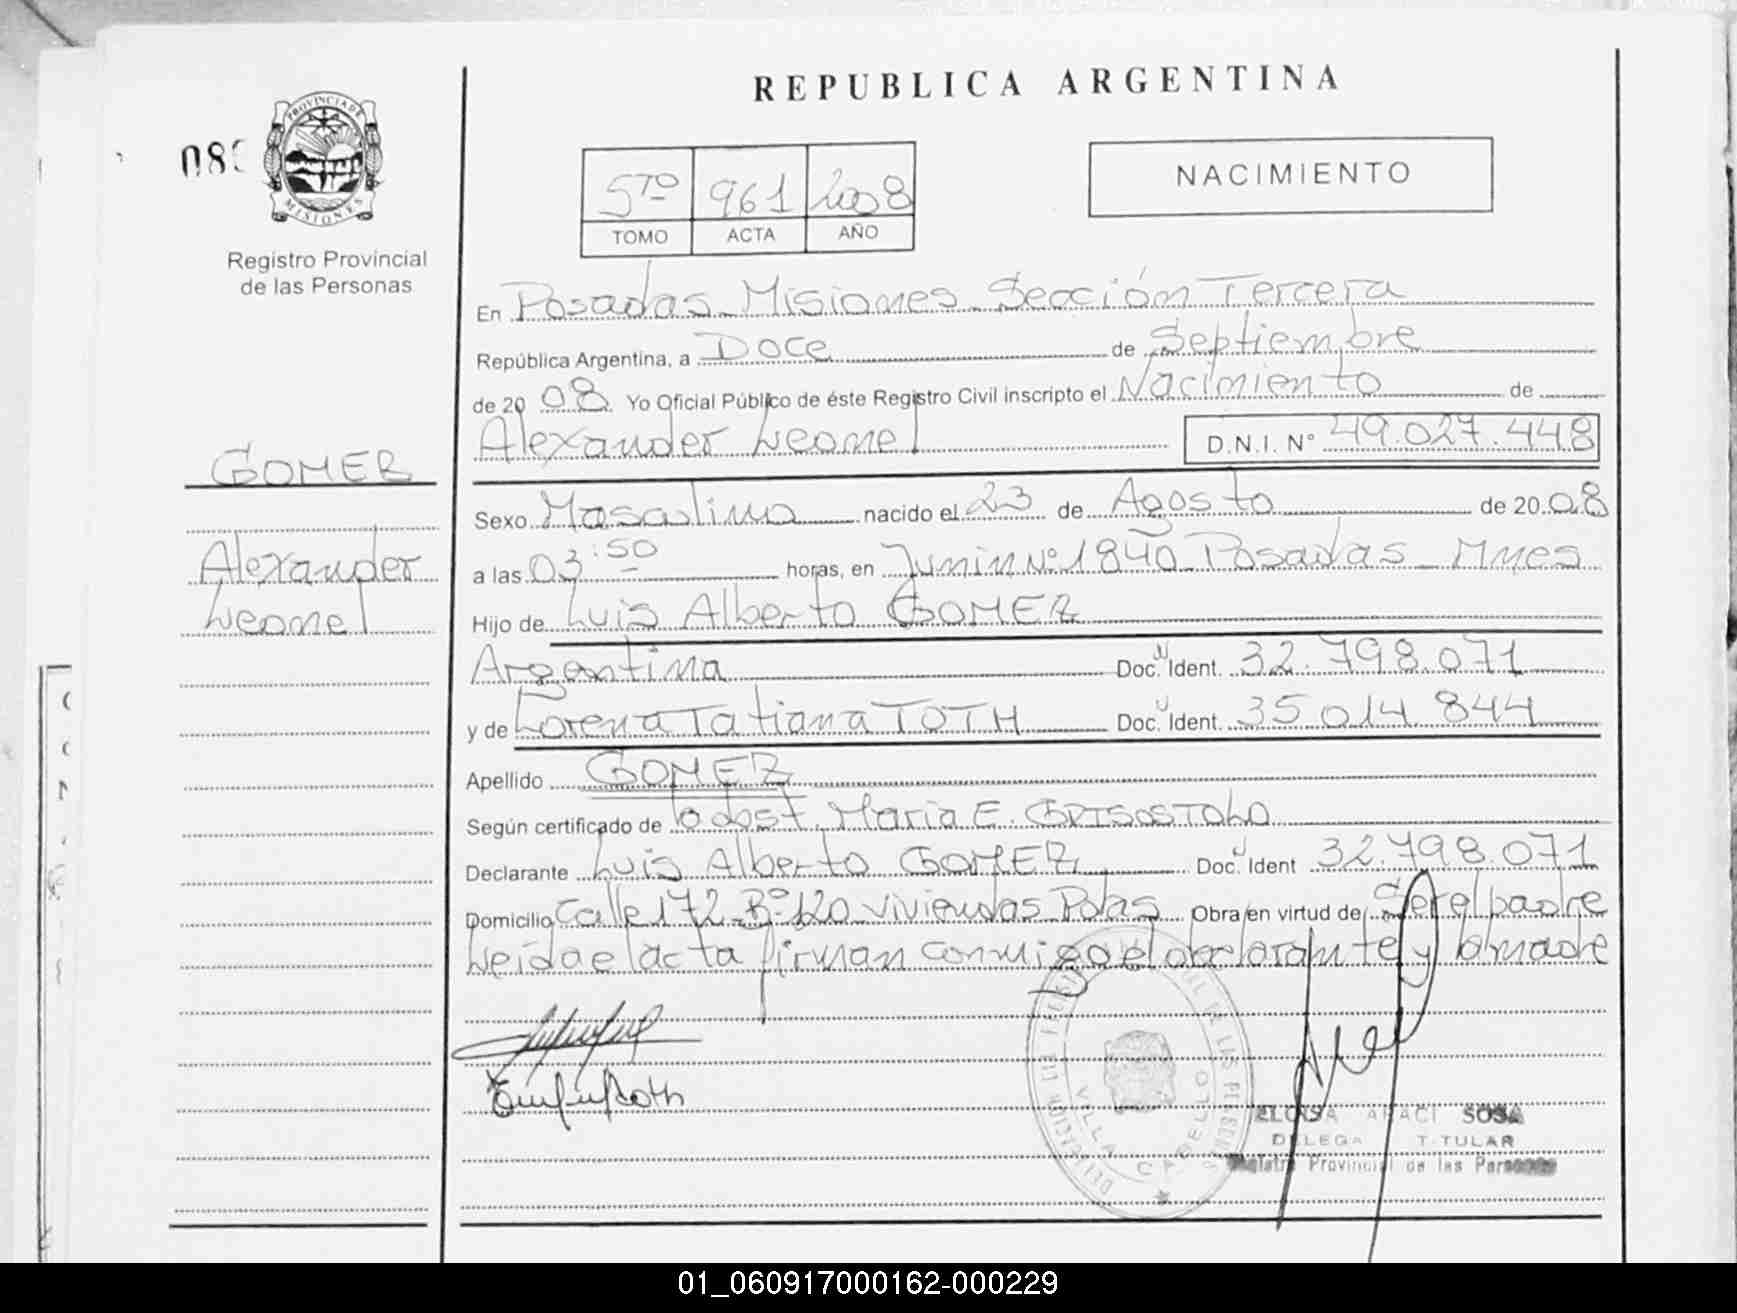 REPUBLICA ARGENTINA
PROVINCIA DE
MISIONES
08
Registro Provincial
de las Personas
5TO 961 2008
TOMO ACTA AÑO
NACIMIENTO
En Posadas Misiones Sección Tercera
República Argentina, a Doce de Septiembre
de 20 08 Yo Oficial Público de éste Registro Civil inscripto el Nacimiento de
Alexander Leonel D.N.I. N° 49.027.448
GOMEZ
Alexander
Leonel
Sexo Masculino nacido el 23 de Agosto de 20 08
a las 03:50 horas, en Junin Nº 1840 Posadas Mnes
Hijo de Luis Alberto GOMEZ
Argentina Doc. Ident. 32.798.071
y de Lorena Tatiana TOTH Doc. Ident. 35 014 844
Apellido GOMEZ
Según certificado de Obst. Maria E.
Declarante Luis Alberto GOMEZ Doc. Ident 32.798.071
Domicilio Calle 172 Bº 120 viviendas Pdas Obra en virtud de ser el padre
Leida el acta firman conmigo el declarante y la madre
VILLA CABELLO
ELOISA ARACI SOSA
DELEGA T TULAR
Registro Provincial de las Personas
01_060917000162-000229